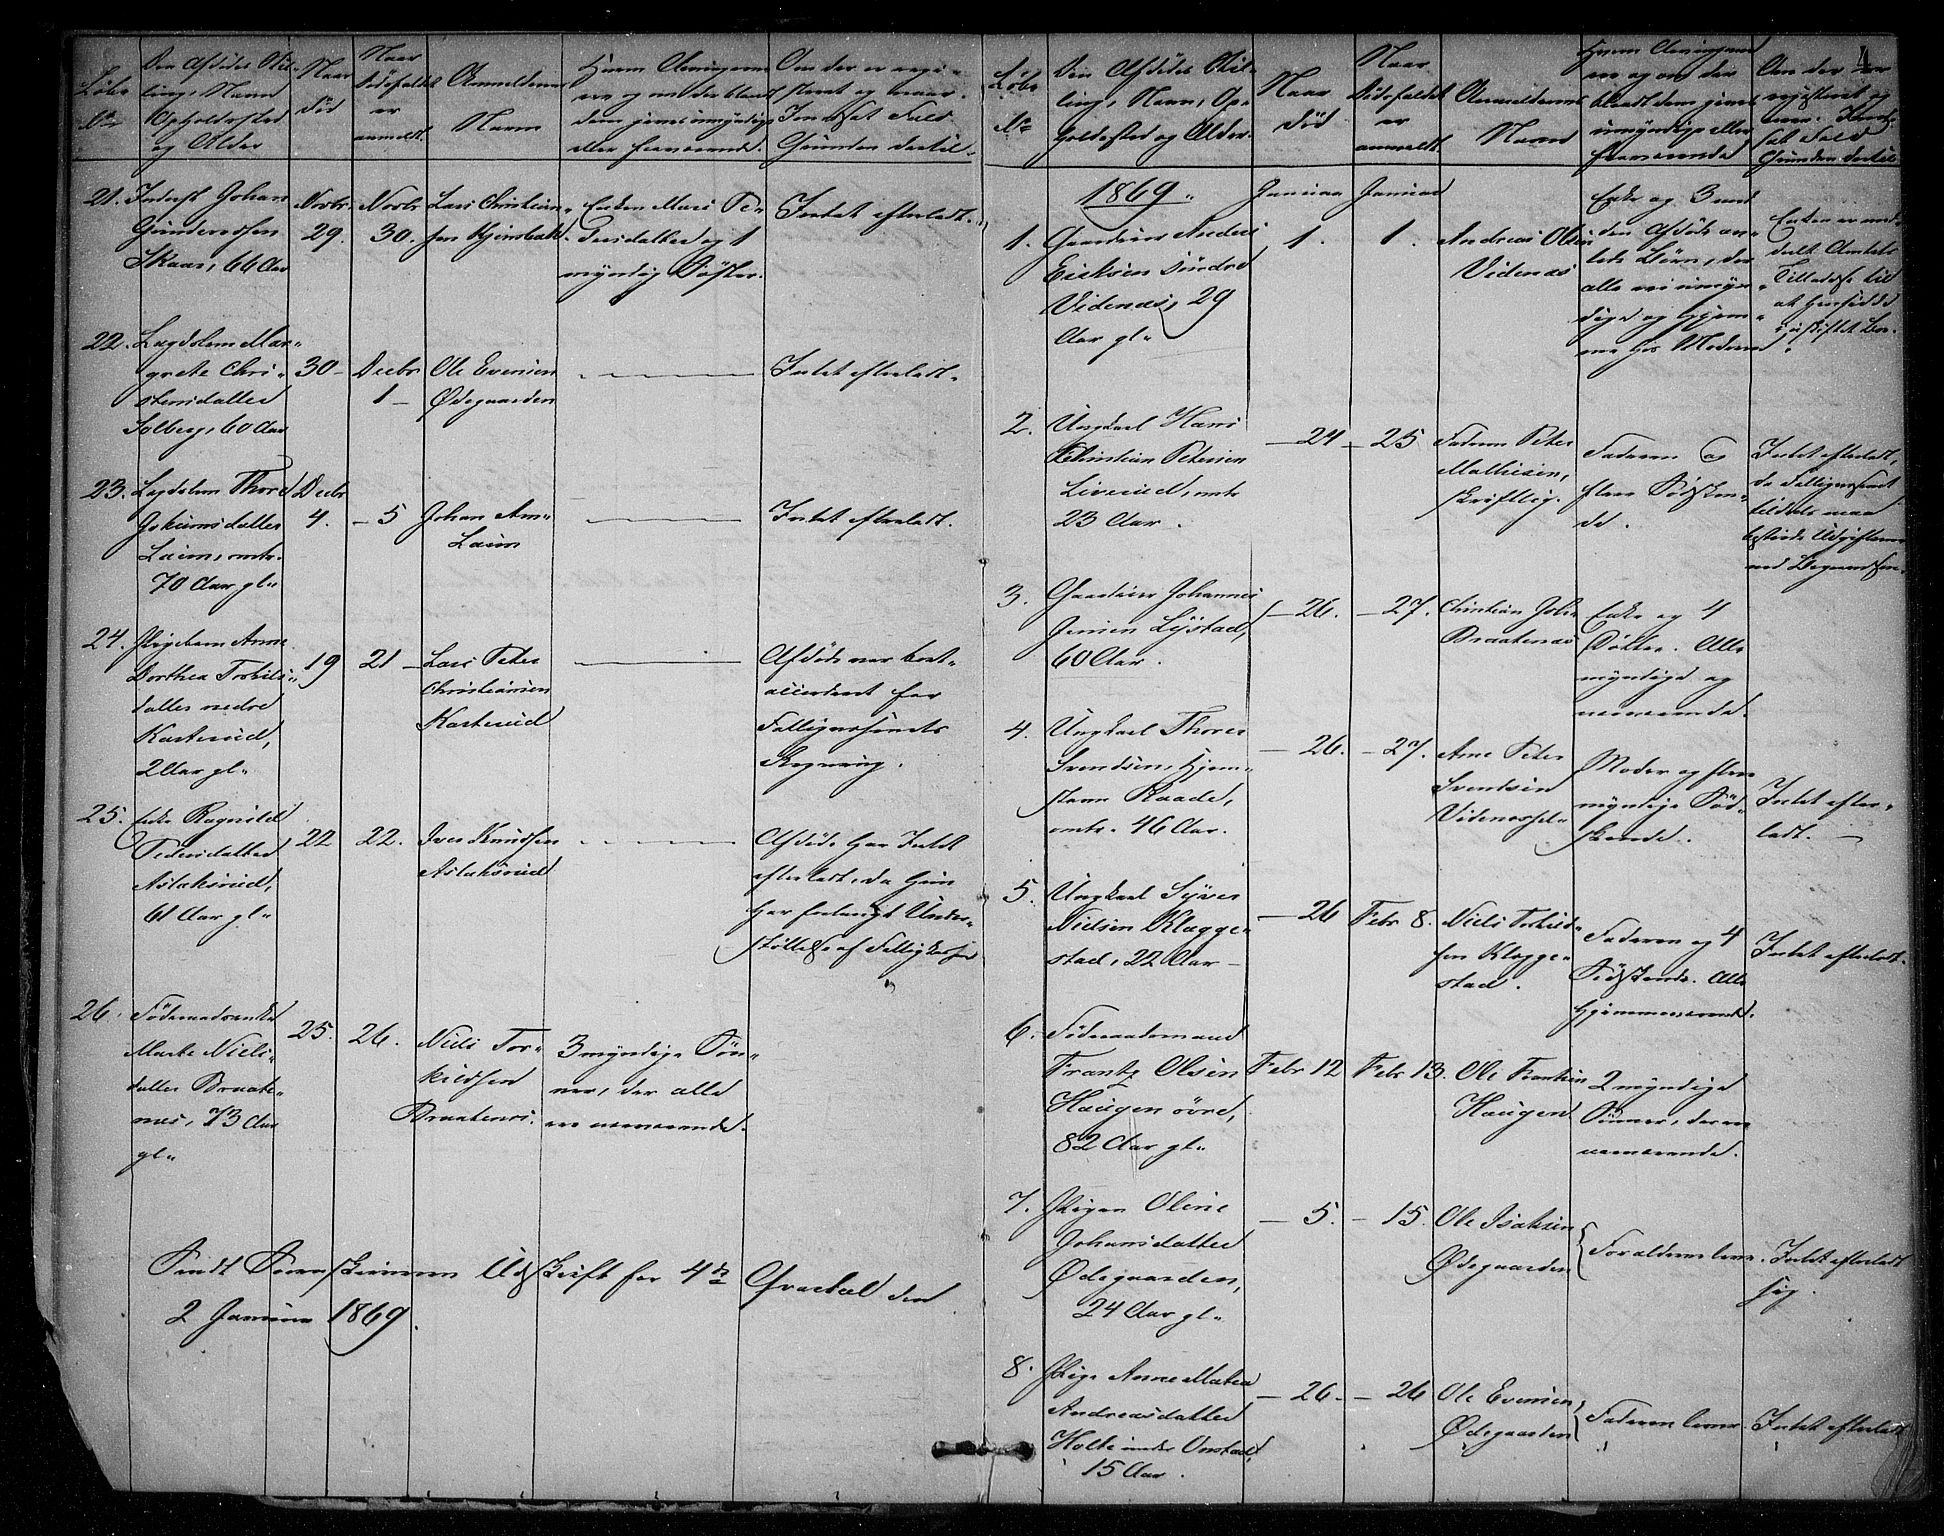 Løbe
No
Den Afdødes Stil-
ling, Navn
Opholdssted
og Alder
Naar
død
Naar
Dødsfaldet
er
anmeldt.
Anmelderens
Navn
Hvem Arvingerne
ere og om der blandt
dem gives umyndige
eller fraværende.
Om der er regi-
streret og naar.
I modsat Fald
Grunden dertil.
21.
Inderst Johan
Gundersen
Skaar, 66 Aar
Novbr
29.
Novbr
30.
Lars Christian-
sen
Enken Mari Pe-
dersdatter og 1
myndig Søster.
Intet efterladt.
22.
Lægdslem Mar-
grete Chri-
stensdatter
Solberg, 60 Aar
30 -
Decbr
1 -
Ole Evensen
Ødegaarden
Intet efterladt.
23.
Lægdslem Thore
Jokumsdatter
Laim, omtr.
70 Aar gl.
Decbr
4.
- 5
Johan Am-
Laim
Intet efterladt.
24.
Pigebarn Anne
Dorthea Torkils-
datter nedre
Kasterud,
2 Aar gl.
19
21
Lars Peter
Christiansen
Kasterud
Afdøde var bort-
accorderet for
Fattigvæsenets
Regning.
25.
Enke Ragnild
Pedersdatter
Aslaksrud,
61 Aar gl.
22
22.
Iver Knudsen
Aslaksrud
Afdøde har Intet
efterladt, da hun
har forlangt Under-
støttelse af Fattigkassen
26.
Føderaadsenke
Marte Niels-
datter Braate-
næs, 73 Aar
gl.
25.
26.
Niels Tor-
kildsen
Braatenæs.
3 myndige Søn-
ner, der alle
ere nærværende.
Sendt Sorenskriveren Udskrift for 4de Qvartal den
2 Januar 1869.
4
Løbe
No
Den Afdødes Stil-
ling, Navn, Op-
holdssted og Alder.
Naar
død
Naar
Dødsfaldet
er
anmeldt
Anmelderens
Navn
Hvem Arvingerne
ere og om der
blandt dem gives
umyndige eller
fraværende
Om der er
registreret og
naar. I mod-
sat Fald
Grunden dertil
1869.
Januar
Januar
1.
Gaardeier Anders
Eriksen søndre
Videnæs, 29
Aar gl.
1.
1.
Andreas Olsen
Videnæs
Enke og 3 med
den Afdøde av-
lede Børn, der
alle ere umyn-
dige og hjem-
me hos Moderen
Enken er med-
delt Amtets
Tilladelse til
at hensidde
i uskiftet Bo.
2.
Ungkarl Hans
Christian Petersen
Liverud, omtr
23 Aar.
- 24
- 25
Faderen Peter
Mathisen,
skriftlig.
Faderen og
flere Sødsken-
de.
Intet efterladt,
da Fattigvæsenet
tildels maa
bestride Udgifterne
ved Begravelsen.
3.
Gaardeier Johannes
Jensen Lystad,
60 Aar.
- 26.
- 27.
Christian Joh.
Braatenæs
Enke og 4
Døttre. Alle
myndige og
nærværende.
4.
Ungkarl Thores
Svendsen, Hjem-
stavn Raade,
omtr. 46 Aar.
- 26.
- 27.
Arne Peter
Svendsen
Videnæsset
Moder og flere
myndige Sød-
skende.
Intet efter-
ladt.
5.
Ungkarl Syver
Nielsen Klægge-
stad, 22 Aar
- 26
Febr 8.
Niels Torkild-
sen Klægge-
stad.
Faderen og 4
Sødskende. Alle
hjemmeværende.
Intet efterladt.
6.
Føderaadsmand
Frantz Olsen
Haugen øvre,
82 Aar gl.
Febr 12
Febr 13.
Ole Frantsen
Haugen
2 myndige
Sønner, der ere
nærværende.
7.
Pigen Oline
Johansdatter
Ødegaarden,
24 Aar gl.
- 5.
- 15.
Ole Isaksen
Ødegaarden
Forældrene leve
Intet efterladt
sig.
8.
Pige Anne Matea
Andreasdatter
Holte under Onstad,
15 Aar.
- 26.
- 26
Ole Evensen,
Ødegaarden
Faderen lever.
Intet efterladt